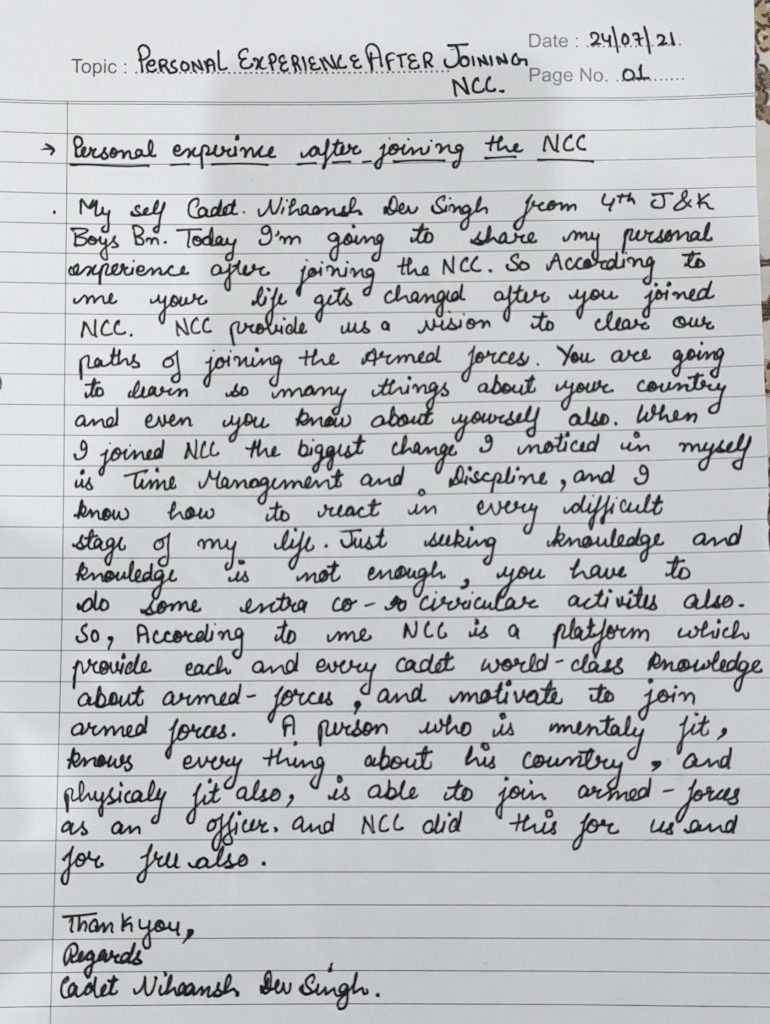 Date : 24/07/21.
Topic : PERSONAL EXPERIENCE AFTER JOINING
NCC.
Page No. 01
→ Personal experince after joining the NCC
. My self Cadet. Nihaansh Dev Singh from 4th J&K
Boys Bn. Today I'm going to share my personal
experience after joining the NCC. So According to
me your life gets changed after you joined
NCC. NCC provide us a vision to clear our
paths of joining the Armed forces. You are going
to learn so many things about your country
and even you know about yourself also. When
I joined NCC the biggest change I noticed in myself
is Time Management and Discpline, and I
know how to react in every difficult
stage of my life. Just seeking knowledge and
knowledge is not enough, you have to
do some extra co- cirricular activites also.
So, According to me NCC is a platform which
provide each and every cadet world-class knowledge
about armed-forces, and motivate to join
armed forces. A person who is mentaly fit,
knows every thing about his country, and
physicaly fit also, is able to join armed-forces
as an officer. and NCC did this for us and
for free also.
Thank you,
Regards
Cadet Nihaansh Dev Singh.